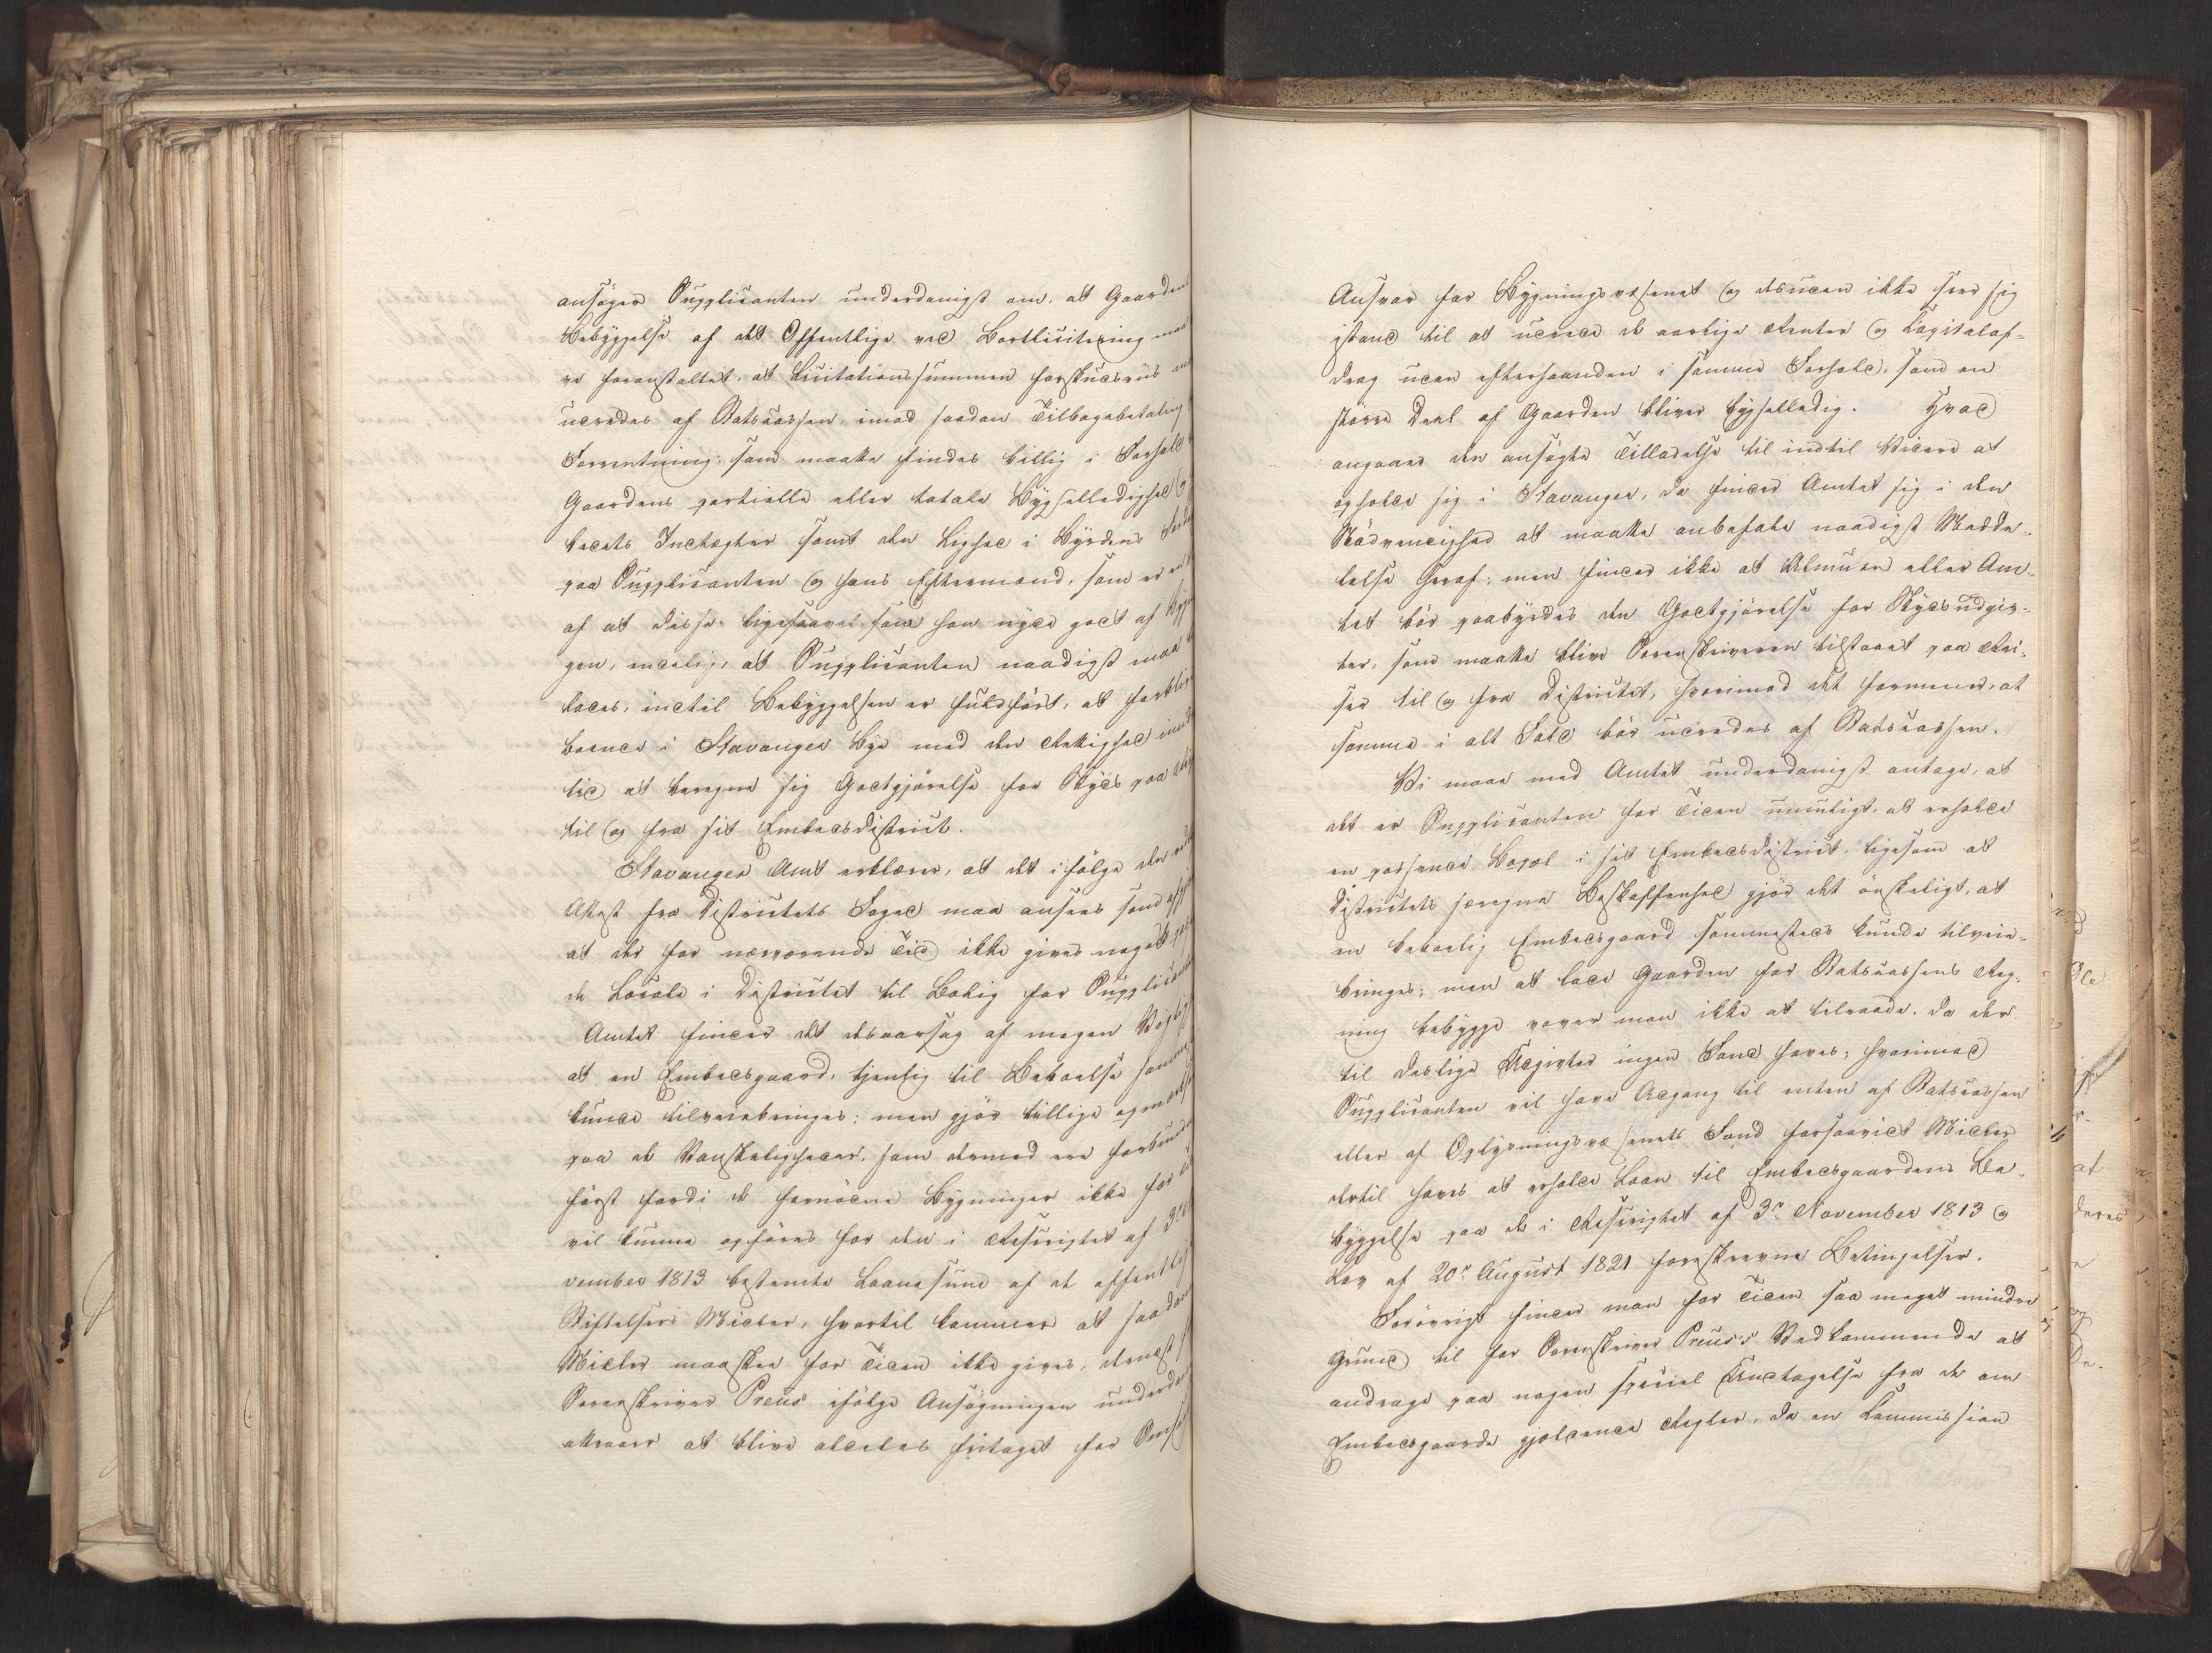 ansøger Supplicanten underdanigst om, at Gaardens
Bebyggelse af det Offentlige ved Bortlicitering maa
vo foranstaltet, at Licitationssummen forskudsviis maa
udredes af Statscassen, imod saadan Tilbagebetaling
Forrentning, som maatte findes billig i Forhold
Gaardens partielle eller totale Bygselledighed og
dens Indtægter samt den Lighed i Byrdens Forde
paa Supplicanten og hans Eftermænd, som er en
af at disse, ligesaavel som han nyde godt af Bygn
gen, endelig, at Supplicanten naadigst maa
lades, indtil Bebyggelsen er fuldført, at forblive
boende i Stavanger Bye med den Rettighed
tid at beregne sig Godtgjørelse for Skyds paa
til og fra sit Embedsdistrict.
Stavanger Amt erklærer, at det ifølge den
Attest fra Districtets Foged maa ansees som
at der for nærværende Tid ikke gives noget
de Locale i Districtet til Bolig for Supplicanten
Amtet finder det desaarsag af megen Vigtighed
at en Embedsgaard, tjenlig til Beboelse
kunde tilveiebringes; men gjør tillige opmærksom
paa de Vanskeligheder, som dermed ere forbundne
først fordi de fornødne Bygninger ikke for
vil kunne opføres for den i Rescriptet af 3die
vember 1813 bestemte Laanesum af de offentlige
Stiftelsers Midler, hvortil kommer at saadanne
Midler maaskee for Tiden ikke gives, dernæst
Sorenskriver Preus ifølge Ansøgningen underdan
attraaer at blive aldeles fritaget for
Ansvar for Bygningsvæsenet og desuden ikke seer sig
istand til at udrede de aarlige Renter og Capitalaf-
drag uden efterhaanden i samme Forhold, som en
større Deel af Gaarden bliver bygselledig. Hvad
angaaer den ansøgte Tilladelse til indtil Videre at
opholde sig i Stavanger, da finder Amtet sig i den
Nødvendighed at maatte anbefale naadigst Medde-
lelse heraf; men finder ikke at Almuen eller Am-
tet bør paabyrdes den Godtgjørelse for Skydsudgif-
ter, som maatte blive Sorenskriveren tilstaaet paa Rei-
ser til og fra Districtet, hvorimod det formener, at
samme i alt Fald bør udredes af Statscassen.
Vi maae med Amtet underdanigst antage, at
det er Supplicanten for Tiden umuligt, at erholde
en passende Bopæl i sit Embedsdistrict, ligesom at
Districtets særegne Beskaffenhed gjør det ønskeligt, at
en beboelig Embedsgaard sammesteds kunde tilveie-
bringes; men at lade Gaarden for Statscassens Reg-
ning bebygge vover man ikke at tilraade, da der
til deslige Udgivter ingen Fond haves; hvorimod
Supplicanten vil have Adgang til enten af Statscassen
eller af Oplysningsvæsenets Fond forsaavidt Midler
dertil haves at erholde Laan til Embedsgaardens Be-
byggelse paa de i Rescriptet af 3die November 1813 og
Lov af 20de August 1821 foreskrevne Betingelser.
Forøvrigt finder man for Tiden saa meget mindre
Grund til for Sorenskriver Preus's Vedkommende at
andrage paa nogen speciel Undtagelse fra de om
Embedsgaarde gjeldende Regler, da en Commission